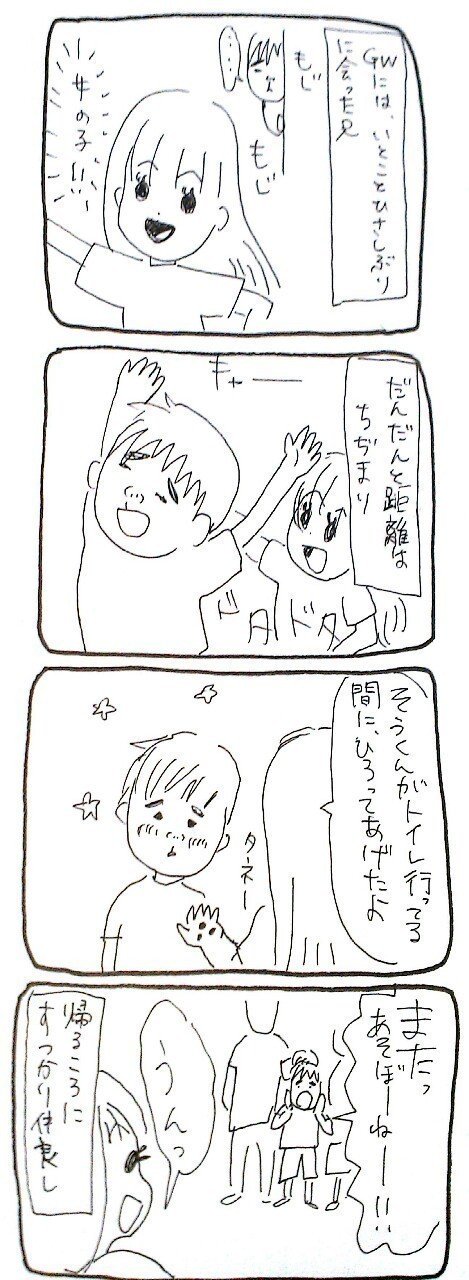 GWには、いとことひさしぶり
に会った兄
もじ
もじ
・・・・
女の子!!
だんだんと距離は
ちぢまり
キャー
ドタドタ
そうくんがトイレ行ってる
間に、ひろってあげたよ
タネー
またっ
あそぼーねー!!
うんっ
帰るころに
すっかり仲良し